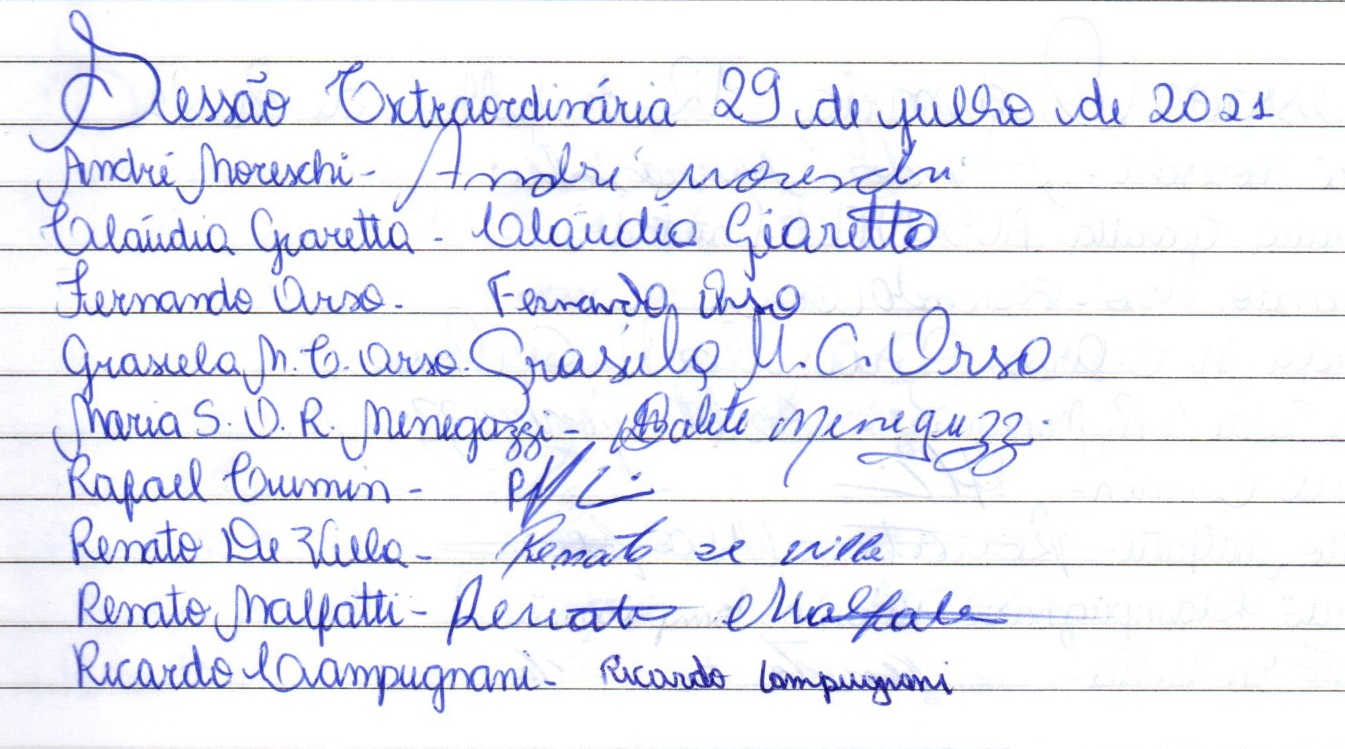 Sessão Extraordinária 29 de julho de 2021
André Moreschi - André Moreschi
Claúdia Giaretta - Claudia Giaretta
Fernando Orso. Fernando Orso
Grasiela M. C. Orso. Grasiela M. C. Orso
Maria S. O. R. Menegazzi - Salete Meneguzzi
Rafael Cumin -
Renato De Villa - Renato de villa
Renato Malfatti - Renato Malfatti
Ricardo Campugnani - Ricardo Campugnani